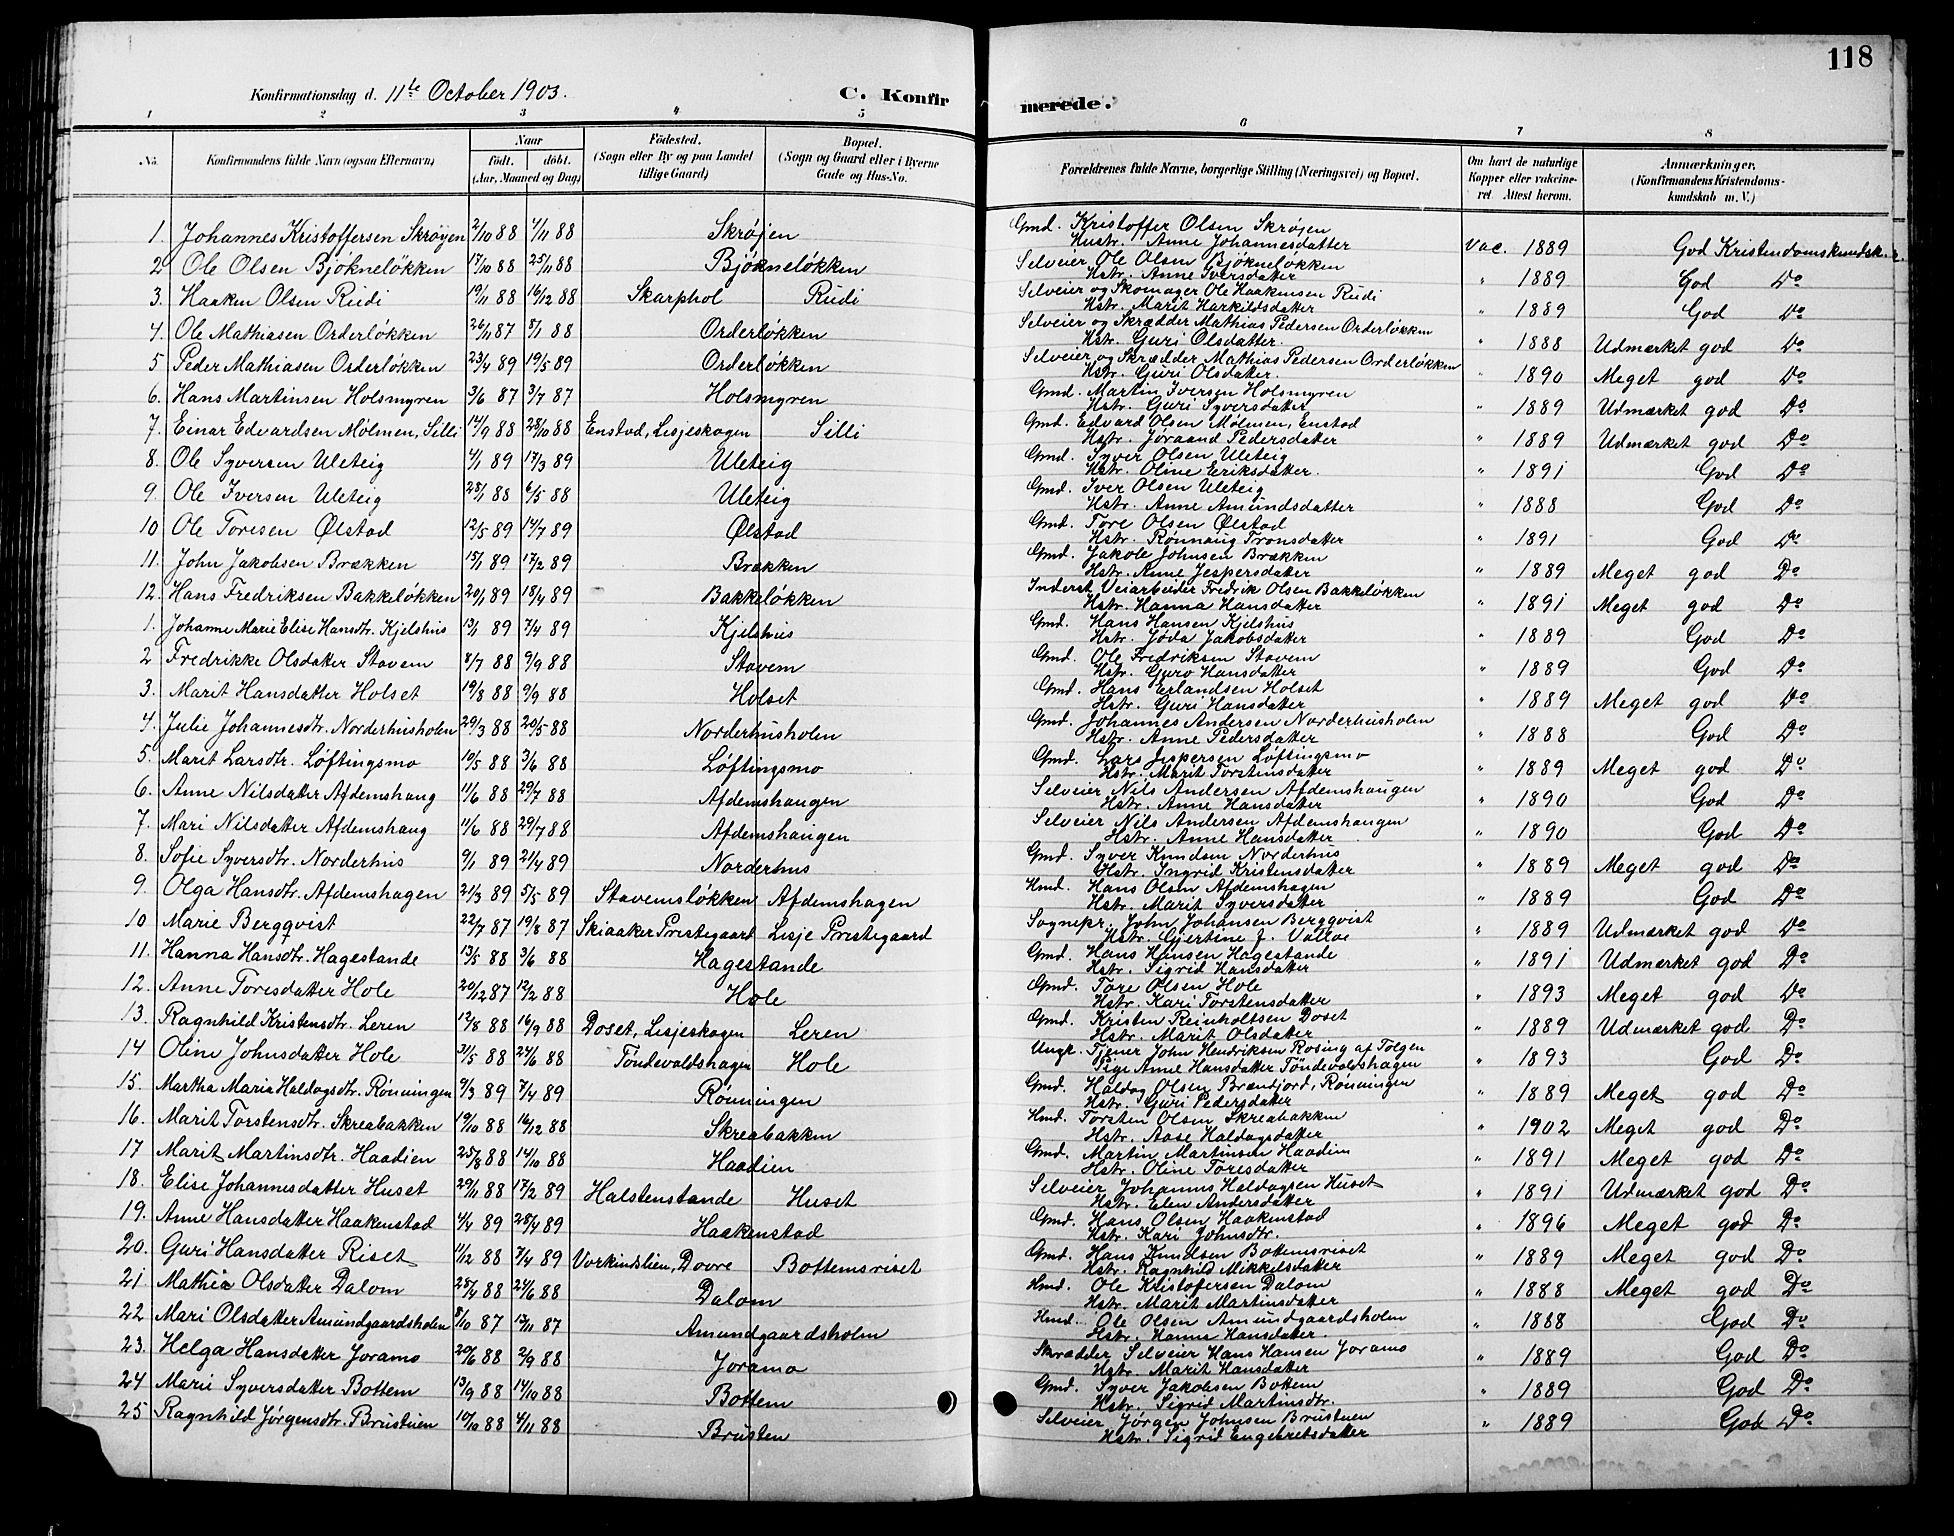 118
Konfirmationsdag d. 11te October 1903. C. Konfirmerede.
1 2 3 4 5 6 7 8
No. Konfirmandens fulde Navn (ogsaa Efternavn) Naar födt. döbt. (Aar, Maaned og Dag) Födested. (Sogn eller By og paa Landet tillige Gaard) Bopæl. (Sogn og Gaard eller i Byerne Gade og Hus-No. Forældrenes fulde Navne, borgerlige Stilling (Næringsvei) og Bopæl. Om havt de naturlige Kopper eller vakcineret. Attest herom. Anmærkninger. (Konfirmandens Kristendomskundskab m. V.)
1. Johannes Kristoffersen Skrøyen 2/10 88 4/11 88 Skrøjen Gmd. Kristoffer Olsen Skrøjen Hustr. Anne Johannesdatter Vac. 1889 God Kristendomskundsk.
2 Ole Olsen Bjøkneløkken 17/10 88 25/11 88 Bjøkneløkken Selveier Ole Olsen Bjøkneløkken Hstr. Anne Iversdatter " 1889 God Do
3. Haaken Olsen Rudi 19/11 88 16/12 88 Skarphol Rudi Selveier og Skomager Ole Haakensen Rudi Hstr. Marit Harkildsdatter " 1889 God Do
4. Ole Mathiasen Orderløkken 26/11 87 8/1 88 Orderløkken Selveier og Skrædder Mathias Pedersen Orderløkken Hstr. Guri Olsdatter. " 1888 Udmærket god Do
5 Peder Mathiasen Orderløkken 23/4 89 19/5 89 Orderløkken Selveier og Skrædder Mathias Pedersen Orderløkken Hstr. Guri Olsdatter. " 1890 Meget god Do
6. Hans Martinsen Holsmyren 3/6 87 3/7 87 Holsmyren Gmd. Martin Iversen Holsmyren Hstr. Guri Syversdatter " 1889 Udmærket god Do
7. Einar Edvardsen Mølmen, Silli 14/9 88 28/10 88 Enstad, Lesjeskogen Silli Gmd. Edvard Olsen Mølmen, Enstad Hstr. Jøraand Pedersdatter " 1889 Udmærket god Do
8. Ole Syversen Uleteig 4/1 89 17/3 89 Uleteig Gmd. Syver Olsen Uleteig Hstr. Oline Eriksdatter. " 1891 God Do
9. Ole Iversen Uleteig 28/1 88 6/5 88 Uleteig Gmd. Iver Olsen Uleteig Hstr. Anne Amundsdatter " 1888 God Do
10 Ole Toresen Ølstad 12/5 89 14/7 89 Ølstad Gmd. Tore Olsen Ølstad Hstr. Rønnaug Tronsdatter " 1891 God Do
11. John Jakobsen Brækken 15/1 89 17/2 89 Brækken Gmd. Jakob Johnsen Brækken Hstr. Anne Jespersdatter " 1889 Meget god Do
12. Hans Fredriksen Bakkeløkken 20/1 89 18/4 89 Bakkeløkken Inderst Veiarbeider Fredrik Olsen Bakkeløkken Hstr. Hanna Hansdatter " 1891 Meget god Do
1. Johanne Marie Elise Hansdtr. Kjelshus 13/1 89 7/4 89 Kjelshus Gmd. Hans Hansen Kjelshus Hstr. Jøda Jakobsdatter " 1889 God Do
2 Fredrikke Olsdatter Stavem 8/7 88 9/9 88 Stavem Gmd. Ole Fredriksen Stavem Hstr. Guro Hansdatter " 1889 God Do
3. Marit Hansdatter Holset 19/8 88 9/9 88 Holset Gmd. Hans Erlandsen Holset Hstr. Guri Hansdatter " 1889 Meget god Do
4. Julie Johannesdtr. Norderhusholen 29/3 88 20/5 88 Norderhusholen Gmd. Johannes Andersen Norderhusholen Hstr. Anne Pedersdatter " 1888 God Do
5. Marit Larsdtr. Løftingsmo 10/5 88 3/6 88 Løftingsmo Gmd. Lars Jespersen Løftingsmo Hstr. Marit Torstinsdatter " 1889 Meget god Do
6. Anne Nilsdatter Afdemshaug 11/6 88 29/7 88 Afdemshaugen Selveier Nils Andersen Afdemshaugen Hstr. Anne Hansdatter " 1890 God Do
7. Mari Nilsdatter Afdemshaug 11/6 88 29/7 88 Afdemshaugen Selveier Nils Andersen Afdemshaugen Hstr. Anne Hansdatter " 1890 God Do
8. Sofie Syversdtr. Norderhus 9/1 89 21/4 89 Norderhus Gmd. Syver Knudsen Norderhus Hstr. Ingrid Kristensdatter " 1889 Meget god Do
9. Olga Hansdtr. Afdemshagen 21/3 89 5/5 89 Stavemsløkken Afdemshagen Hmd. Hans Olsen Afdemshagen Hstr. Marit Syversdatter " 1889 God Do
10 Marie Bergqvist 22/7 87 19/8 87 Skiaaker Prestegaard Lesje Prestegaard Sognepr. John Johansen Bergqvist Hstr. Gjertine J. Vallae " 1889 Udmærket god Do
11. Hanna Hansdtr. Hagestande 13/5 88 3/6 88 Hagestande Gmd. Hans Hansen Hagestande Hstr. Sigrid Hansdatter " 1891 Udmærket god Do
12. Anne Toresdatter Hole 20/12 87 12/2 88 Hole Gmd. Tore Olsen Hole Hstr. Kari Torstensdatter " 1893 Meget god Do
13. Ragnhild Kristensdtr. Leren 12/8 88 16/9 88 Doset, Lesjeskogen Leren Gmd. Kristen Reinholtsen Doset Hstr. Marit Olsdatter " 1889 Udmærket god Do
14 Oline Johnsdatter Hole 31/5 88 24/6 88 Tøndevoldshagen Hole Ungk. Tjener John Hendriksen Rosing af Tolgen Pige Anne Hansdatter Tøndevoldshagen " 1893 God Do
15. Martha Maria Haldogsdtr. Rønningen 9/3 89 7/4 89 Rønningen Gmd. Haldog Olsen Brændjord, Rønningen Hstr. Guri Pedersdatter " 1889 Meget god Do
16. Marit Torstensdtr. Skreabakken 19/10 88 16/12 88 Skreabakken Hmd. Torsten Olsen Skreabakken Hstr. Aase Haldogsdatter " 1902 Meget god Do
17 Marit Martinsdtr. Haadien 25/8 88 14/10 88 Haadien Gmd. Martin Martinsen Haadien Hstr. Oline Toresdatter " 1891 Meget god Do
18. Elise Johannesdatter Huset 29/11 88 17/2 89 Halstenstande Huset Selveier Johannes Haldogsen Huset Hstr. Elen Andersdatter " 1891 Udmærket god Do
19. Anne Hansdatter Haakenstad 4/4 89 28/4 89 Haakenstad Gmd. Hans Olsen Haakenstad Hstr. Kari Johnsdtr. " 1896 Meget god Do
20. Guri Hansdatter Riset 11/12 88 7/4 89 Vorkindslien, Dovre Bottemsriset Gmd. Hans Knudsen Bottemsriset Hstr. Ragnhild Mikkelsdatter " 1889 Meget god Do
21 Mathia Olsdatter Dalom 25/4 88 24/6 88 Dalom Hmd. Ole Kristofersen Dalom Hstr. Marit Martinsdatter " 1888 Meget god Do
22 Mari Olsdatter Amundgaardsholen 8/10 87 13/11 87 Amundgaardsholen Hmd. Ole Olsen Amundgaardsholen Hstr. Hanna Hansdatter. " 1888 God Do
23. Helga Hansdatter Joramo 20/6 88 2/9 88 Joramo Skrædder, Selveier Hans Hansen Joramo Hstr. Marit Hansdatter " 1889 God Do
24 Marie Syversdatter Bottem 13/9 88 14/10 88 Bottem Gmd. Syver Jakobsen Bottem Hstr. Sigrid Martinsdtr. " 1889 God Do
25 Ragnhild Jørgensdtr. Brustuen 10/10 88 4/11 88 Brusten Selveier Jørgen Johnsen Brustuen Hstr. Sigrid Engebretsdatter " 1889 God Do